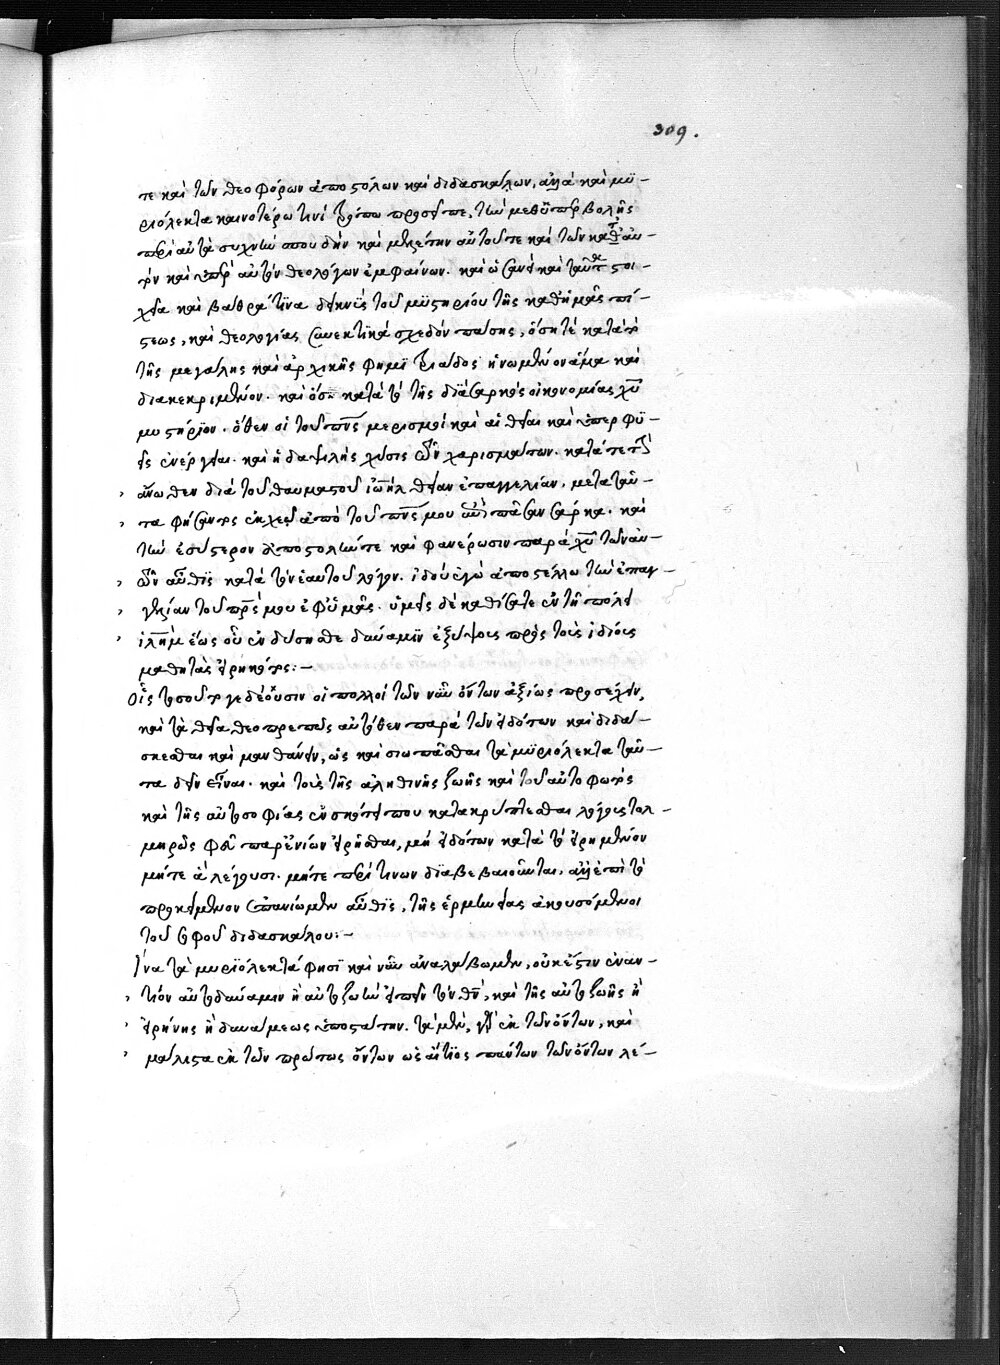 309.
τε καὶ τῶν θεοφόρων ἀποστόλων καὶ διδασκάλων, ἀλλὰ καὶ μυ-
ριόλεκτα καινοτέρω τινὶ τρόπω προσεῖπε, τὴν μεθ' ὑπερβολῆς
περὶ αὐτὰ συχνὴν σπουδὴν καὶ μελέτην αὐτοῦ τε καὶ τῶν καθ' αὐ-
τὸν καὶ ὑπὲρ αὐτὸν θεολόγων ἐμφαίνων. καὶ ὡσανεὶ καὶ ταῦτα στοι-
χεῖα καὶ βάθρα τινα διηνεῖς τοῦ μυστηρίου τῆς καθ' ἡμᾶς πί-
στεως, καὶ θεολογίας συνεκτικὰ σχεδὸν πάσης, ὅση τὲ κατὰ τὸ
τῆς μεγάλης καὶ ἀρχικῆς φημὶ τριάδος ἡνωμένον ἅμα καὶ
διακεκριμένον. καὶ ὅση κατὰ τὸ τῆς διὰ σαρκὸς οἰκονομίας χυ
μυστήριον. ὅθεν οἱ τοῦ πνς μερισμοὶ καὶ αἱ θεῖαι καὶ ὑπερφυ-
εῖς ἐνέργειαι. καὶ ἡ δαψιλὴς χύσις τῶν χαρισμάτων. κατά τε τὴν
ἄνωθεν διὰ τοῦ θαυμαστοῦ ἰωὴλ θείαν ἐπαγγελίαν, μετὰ ταῦ-
τα φήσαντος ἐκχεῶ ἀπὸ τοῦ πνς μου ἐπὶ πᾶσαν σάρκα. καὶ
τὴν ἐσύστερον ἀποστολήν τε καὶ φανέρωσιν παρὰ χυ τῶν αὐ-
τῶν αὖθις κατὰ τὸν ἑαυτοῦ λόγον. ἰδοὺ ἐγὼ ἀποστέλλω τὴν ἐπαγ-
γελίαν τοῦ πρς μου ἐφ' ὑμᾶς. ὑμεῖς δὲ καθίσατε ἐν τῇ πόλει
ἰλημ ἕως οὗ ἐνδύσησθε δύναμιν ἐξ ὕψους πρὸς τοὺς ἰδίους
μαθητὰς εἰρηκότος:-
Οἷς τοσοῦτο γε δέουσιν οἱ πολλοὶ τῶν νῦν ὄντων ἀξίως προσέχειν,
καὶ τὰ θεῖα θεοπρεπῶς αὐτόθεν παρὰ τῶν εἰδότων καὶ διδά-
σκεσθαι καὶ μανθάνειν, ὡς καὶ σιωπᾶσθαι τὰ μυριόλεκτα ταῦ-
τα δεῖν εἶναι. καὶ τοὺς τῆς ἀληθινῆς ζωῆς καὶ τοῦ αὐτοφωτὸς
καὶ τῆς αὐτοσοφίας ἐν σκότει που κατακρύπτεσθαι λόγους τολ-
μηρῶς φεῦ παρ' ἐνίων εἰρῆσθαι, μὴ εἰδότων κατὰ τὸ εἰρημένον
μήτε ἃ λέγουσι. μήτε περὶ τίνων διαβεβαιοῦνται. ἀλλ' ἐπὶ τὸ
προκείμενον ἐπανίωμεν αὖθις, τῆς ἑρμηνείας ἀκουσόμενοι
τοῦ σοφοῦ διδασκάλου:-
Ἵνα τὰ μυριόλεκτά φησι καὶ νῦν ἀναλάβωμεν, οὐκ ἔστιν ἐναν-
τίον αὐτοδύναμιν ἢ αὐτοζωὴν εἰπεῖν τὸν θν, καὶ τῆς αὐτοζωῆς ἢ
εἰρήνης ἢ δυνάμεως ὑποστάτην. τὰ μὲν, γὰρ ἐκ τῶν ὄντων, καὶ
μάλιστα ἐκ τῶν πρώτως ὄντων ὡς αἴτιος πάντων τῶν ὄντων λέ-